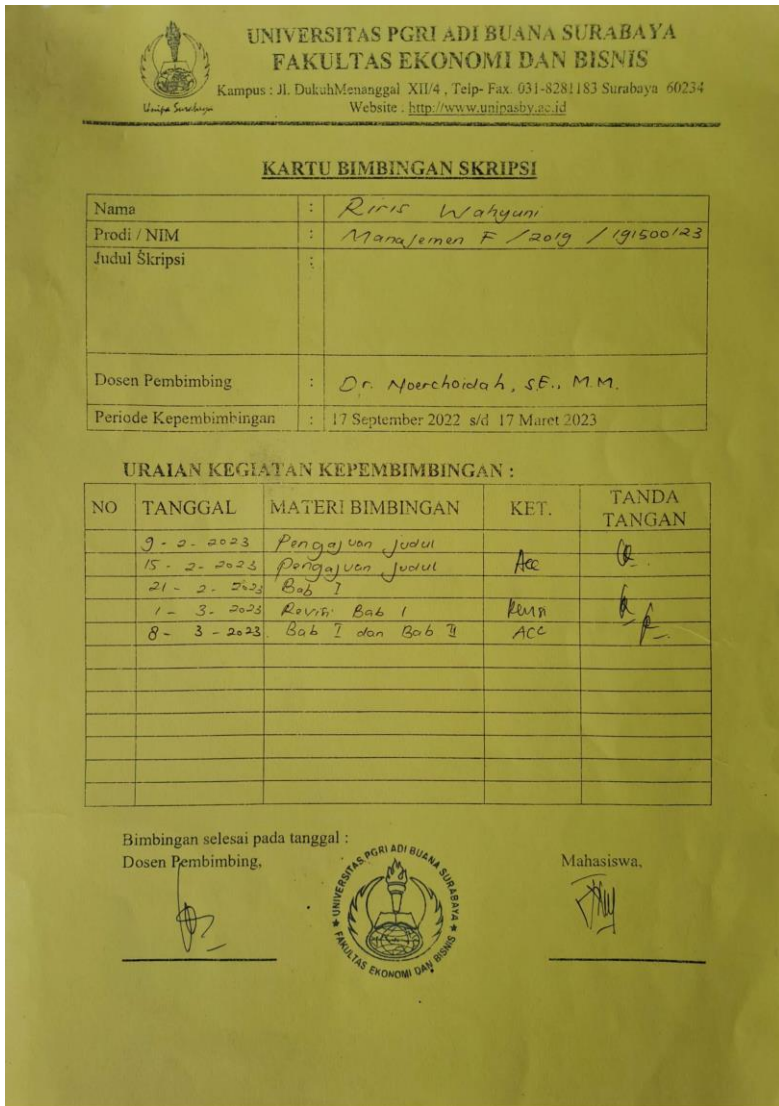 UNIVERSITAS PGRI ADI BUANA SURABAYA
FAKULTAS EKONOMI DAN BISNIS
Kampus : Jl. DukuhMenanggal XII/4 , Telp- Fax. 031-8281183 Surabaya 60234
Website . http://www.unipasby.ac.id
Unipa Surabaya
KARTU BIMBINGAN SKRIPSI
Nama : Riris Wahyuni
Prodi / NIM : Manajemen F / 2019 / 191500123
Judul Skripsi :
Dosen Pembimbing : Dr. Noerchoidah, S.E., M.M.
Periode Kepembimbingan : 17 September 2022 s/d 17 Maret 2023
URAIAN KEGIATAN KEPEMBIMBINGAN :
NO TANGGAL MATERI BIMBINGAN KET. TANDA TANGAN
9 - 2 - 2023 Pengajuan judul
15 - 2 - 2023 Pengajuan judul Acc
21 - 2 - 2023 Bab I
1 - 3 - 2023 Revisi Bab 1 Revisi
8 - 3 - 2023. Bab I dan Bab II ACC
Bimbingan selesai pada tanggal :
Dosen Pembimbing, Mahasiswa,
UNIVERSITAS PGRI ADI BUANA SURABAYA
FAKULTAS EKONOMI DAN BISNIS